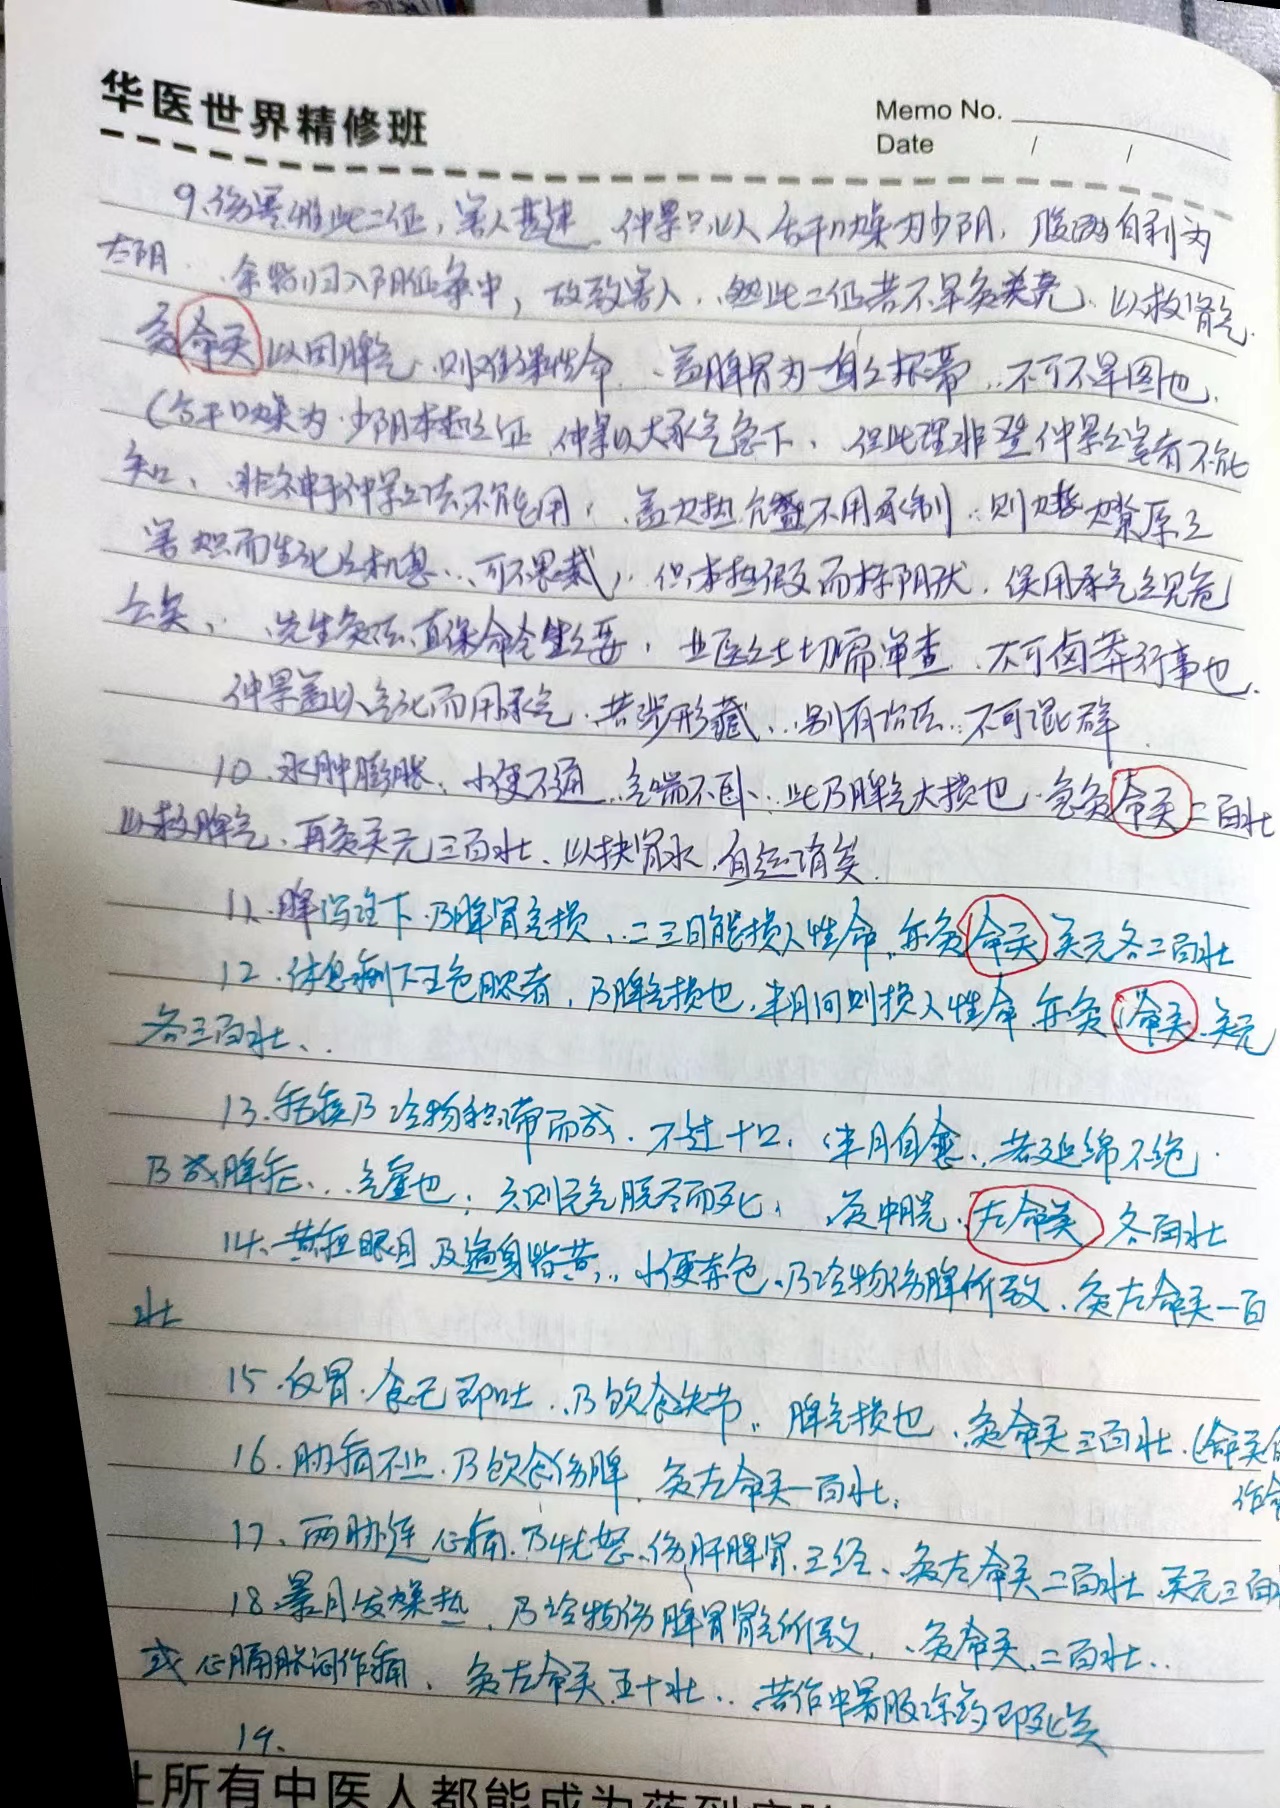 华医世界精修班
Memo No.
Date / /
9.伤寒惟此二证,害人甚速.仲景只以舌干口燥为少阴,腹满自利为
太阴.余皆归入阴证条中,故致害人.然此二证若不早灸关元.以救肾气.
灸命关以固脾气.则难保性命.盖脾肾为一身之根蒂..不可不早图也.
(舌干口燥为.少阴本热之证.仲景以大承气急下、但此理非登仲景之堂者不能
知、非神于仲景之法不能用,盖火热亢盛不用承制.则燎原之
害炽而生化之机息...可不畏哉,但本热假而标阴伏,误用承气立见危
亡矣、.先生灸法真保命全生之要,业医之士切需审查、不可卤莽行事也.
仲景盖以气化而用承气.若涉形藏、..别有治法..不可混群
10.水肿膨胀、小便不通..气喘不卧..此乃脾气大损也.急灸命关二百壮
以救脾气、再灸关元三百壮、以扶肾水,自运消矣.
11.脾泻注下.乃脾肾气损,二三日能损人性命.亦灸命关 关元各二百壮
12.休息痢下五色脓者,乃脾气损也,半月间则损人性命.亦灸命关.关元
各三百壮、.
13.乃冷物积滞而成.不过十日、半月自愈、若延绵不绝.
乃成脾..气虚也;久则元气脱尽而死,.灸中脘.左命关 各百壮
14.黄疸眼目及遍身皆黄,..小便赤色.乃冷物伤脾所致.灸左命关一百
壮
15.反胃.食已即吐.乃饮食失节..脾气损也.灸命关三百壮.(命关
16.胁痛不止.乃饮食伤脾.灸左命关一百壮.
17.两胁连心痛.乃忧怒.伤肝脾肾.三经、灸左命关二百壮.关元三百
18.暑月发燥热,乃冷物伤脾胃肾气所致,.灸命关.二百壮..
或心膈胀闷作痛、灸左命关五十壮..若作中暑服凉药即死矣
19.
让所有中医人都能成为药到